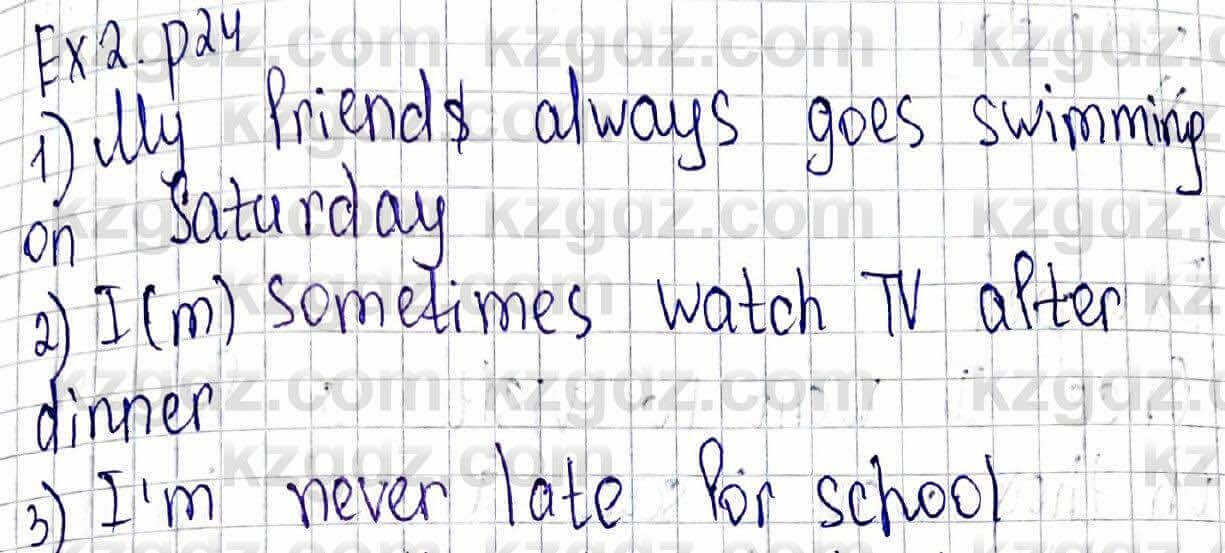 Ex2. p24
1) My friends always goes swimming
on Saturday
2) I(m) sometimes watch TV after
dinner
3) I'm never late for school
kzgdz.com